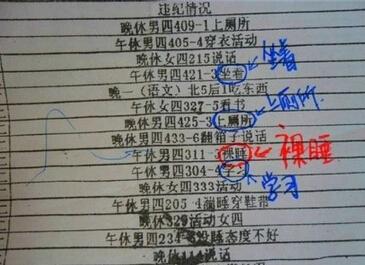 违纪情况
晚休男四409-1上厕所
午休男四405-4穿衣活动
晚休女四215说话
午休男四421-3坐着 坐着
晚一（语文）北5后1吃东西
午休女四327-5看书
晚休男四425-3上厕所 上厕所
晚休男四433-6翻箱子说话
午休男四311-1裸睡 裸睡
午休男四304-4学习 学习
晚休女四333活动
午休男四205-4踹睡穿鞋带
晚休329活动女四
午休男四234-8没睡态度不好
晚休